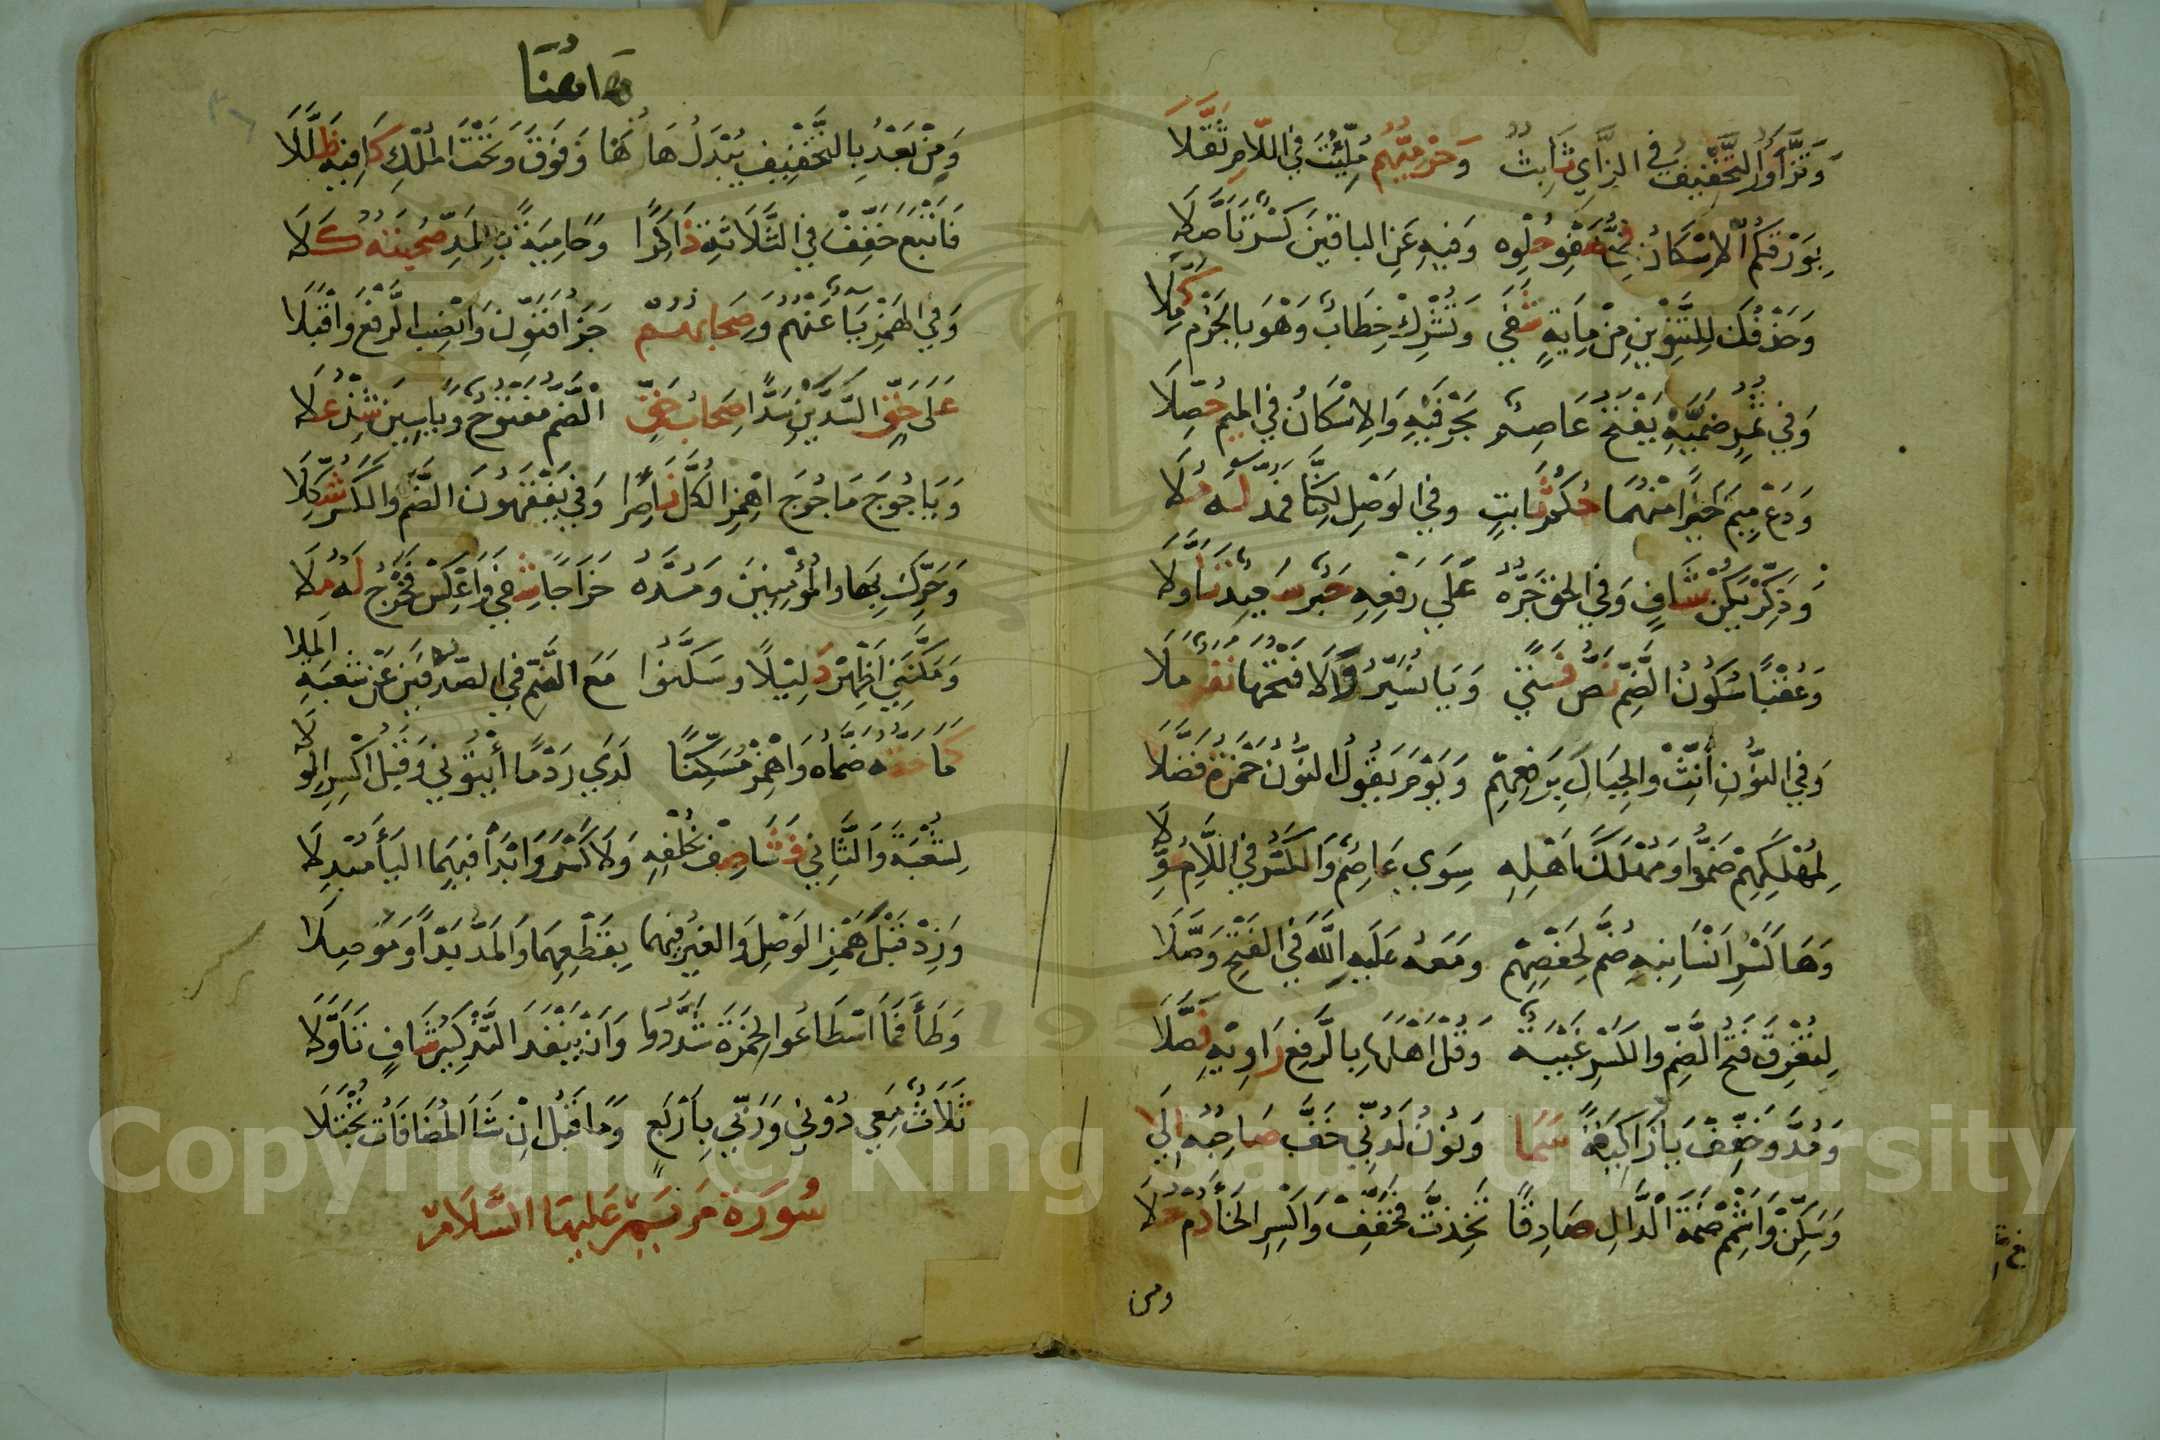 وَتَزَّاوَرُ التَّخْفِيفُ فِي الزَّايِ ثَابِتٌ وَحِرْمِيُّهُمْ مُلِّئْتَ فِي اللَّامِ ثَقَّلَا
بِوَرْقِكُمُ الْإِسْكَانُ فِي صَفْوِ حُلْوِهِ وَفِيهِ عَنِ الْبَاقِينَ كَسْرٌ تَأَصَّلَا
وَحَذْفُكَ لِلتَّنْوِينِ مِنْ مِايَةٍ شَفَى وَتُشْرِكْ خِطَابٌ وَهْوَ بِالْجَزْمِ كُمِّلَا
وَفِي ثُمُرٍ ضَمَّيْهِ يَفْتَحُ عَاصِمٌ بِحَرْفَيْهِ وَالْإِسْكَانُ فِي الْمِيمِ حُصِّلَا
وَدَعْ مِيمَ خَيْرًا مِنْهُمَا حُكْمُ ثَابِتٍ وَفِي الْوَصْلِ لَكِنَّا فَمُدَّ لَهُ مُلَا
وَذَكِّرْ يَكُنْ شَافٍ وَفِي الْحَقِّ جَرُّهُ عَلَى رَفْعِهِ حَبْرٌ سَعِيدٌ تَأَوَّلَا
وَعُقْبًا سُكُونُ الضَّمِّ نَصُّ فَتًى وَيَا نُسَيِّرُ وَالَى فَتْحَهَا نَفَرٌ مَلَا
وَفِي النُّونِ أَنِّثْ وَالْجِبَالَ بِرَفْعِهِمْ وَيَوْمَ يَقُولُ النُّونُ حَمْزَةُ فَضَّلَا
لِمُهْلَكِهِمْ ضَمُّوا وَمُهْلَكَ أَهْلِهِ سِوَى عَاصِمٍ وَالْكَسْرُ فِي اللَّامِ عُوِّلَا
وَهَا كَسْرِ أَنْسَانِيهِ ضُمَّ لِحَفْصِهِمْ وَمَعْهُ عَلَيْهِ اللَّهَ فِي الْفَتْحِ وَصَّلَا
لِتُغْرِقَ فَتْحُ الضَّمِّ وَالْكَسْرِ غَيْبَةً وَقُلْ أَهْلُهَا بِالرَّفْعِ رَاوِيهِ فَصَّلَا
وَمُدَّ وَخَفِّفْ يَاءَ زَاكِيَةً سَمَا وَنُونُ لَدُنِّي خَفَّ صَاحِبُهُ إِلَى
وَسَكِّنْ وَاشْمِمْ ضَمَّةَ الدَّالِ صَادِقًا تَخِذْتَ فَخَفِّفْ وَاكْسِرِ الْخَاءَ دُمْ حُلَا
ومن
هاهنا
وَمِنْ بَعْدُ بِالتَّخْفِيفِ يُبْدِلُ هَاهُنَا وَفَوْقَ وَتَحْتَ الْمُلْكِ كَافِيهِ ظَلَّلَا
فَاتْبَعَ خَفِّفْ فِي الثَّلَاثَةِ ذَاكِرًا وَحَامِيَةً بِالْمَدِّ صُحْبَتُهُ كَلَا
وَفِي الْهَمْزِ يَاءٌ عَنْهُمُ وَصِحَابُهُمْ جَزَا فَنَوِّنْ وَانْصِبِ الرَّفْعَ وَاقْبَلَا
عَلَى حَقٍّ السَّدَّيْنِ سَدًّا صِحَابُ حَقٍّ الضَّمُّ مَفْتُوحٌ وَيَاسِينَ شِدْ عُلَا
وَيَاجُوجَ مَاجُوجَ اهْمِزِ الْكُلَّ نَاصِرًا وَفِي يَفْقَهُونَ الضَّمُّ وَالْكَسْرُ شُكِّلَا
وَحَرِّكْ بِهَا وَالْمُؤْمِنِينَ وَمُدَّهُ خَرَاجًا شَفَى وَاعْكِسْ فَخَرْجُ لَهُ مُلَا
وَمَكَّنَنِي أَظْهِرْ دَلِيلًا وَسَكَّنُوا مَعَ الضَّمِّ فِي الصُّدْفَيْنِ عَنْ شُعْبَةَ الْمَلَا
كَمَا حَقُّهُ ضَمَّاهُ وَاهْمِزْ مُسَكِّنًا لَدَى رَدْمًا أْتُونِي وَقَبْلُ اكْسِرِ الْوِلَا
لِشُعْبَةَ وَالثَّانِي فَشَا صِفْ بِخُلْفِهِ وَلَا كَسْرَ وَابْدَأْ فِيهِمَا الْيَاءَ مُبْدِلَا
وَزِدْ قَبْلُ هَمْزَ الْوَصْلِ وَالْغَيْرُ فِيهِمَا بِقَطْعِهِمَا وَالْمَدِّ بَدْأً وَمَوْصِلَا
وَطَاءَ فَمَا اسْطَاعُوا لِحَمْزَةَ شَدَّدُوا وَأَنْ يَنْفَدَ التَّذْكِيرُ شَافٍ تَأَوَّلَا
ثَلَاثٌ مَعِي دُونِي وَرَبِّي بِأَرْبَعٍ وَمَا قَبْلُ إِنْ شَاءَ الْمُضَافَاتُ تُجْتَلَا
سُورَةُ مَرْيَمَ عَلَيْهَا السَّلَامُ
Copyright © King Saud University